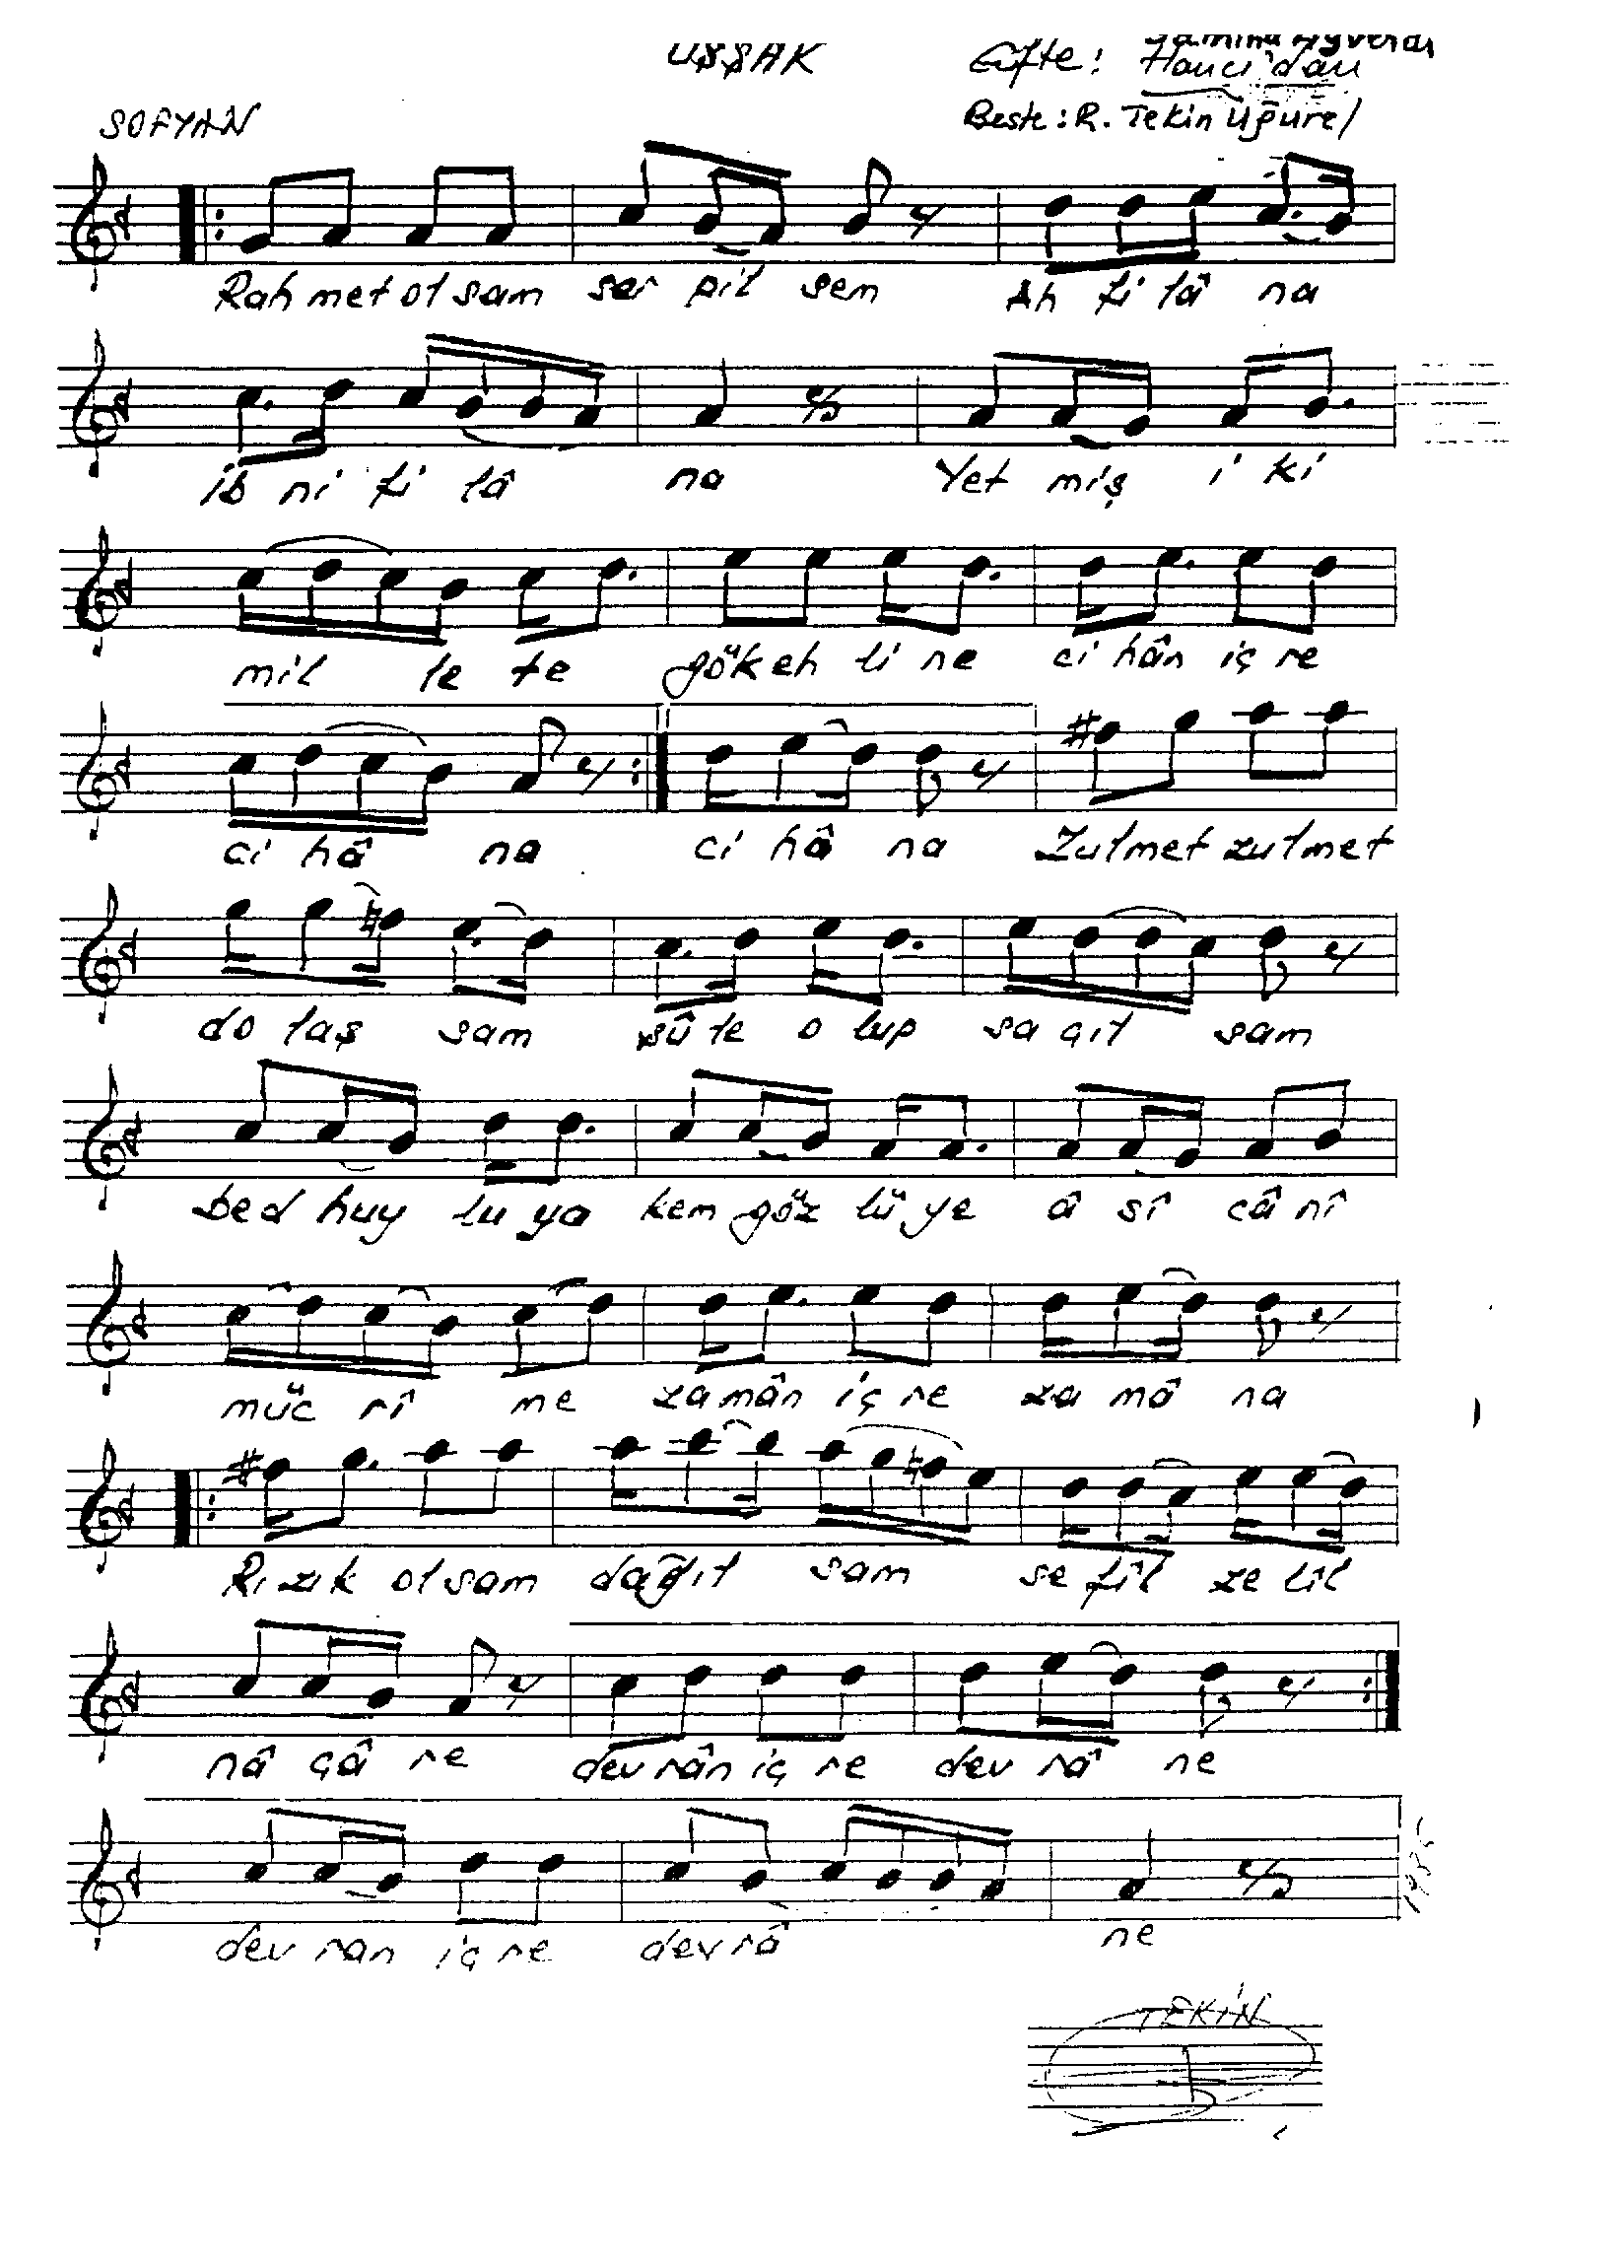 UŞŞAK
Güfte: Hancı'dan
SOFYAN
Beste: R. Tekin Uğurel
Rah met ol sam ser pil sem Ah fi lâ na
ib ni fi lâ na Yet miş i ki
mil le te gök eh li ne ci hân iç re
ci hâ na ci hâ na Zulmet zulmet
do laş sam şû le o lup saçıl sam
Bed huy lu ya kem göz lü ye â sî câ nî
müc ri me zamân iç re za mâ na
Rı zık ol sam dağıt sam se fîl ze lîl
nâ çâ re devrân iç re dev râ ne
dev ran iç re dev râ ne
TEKİN